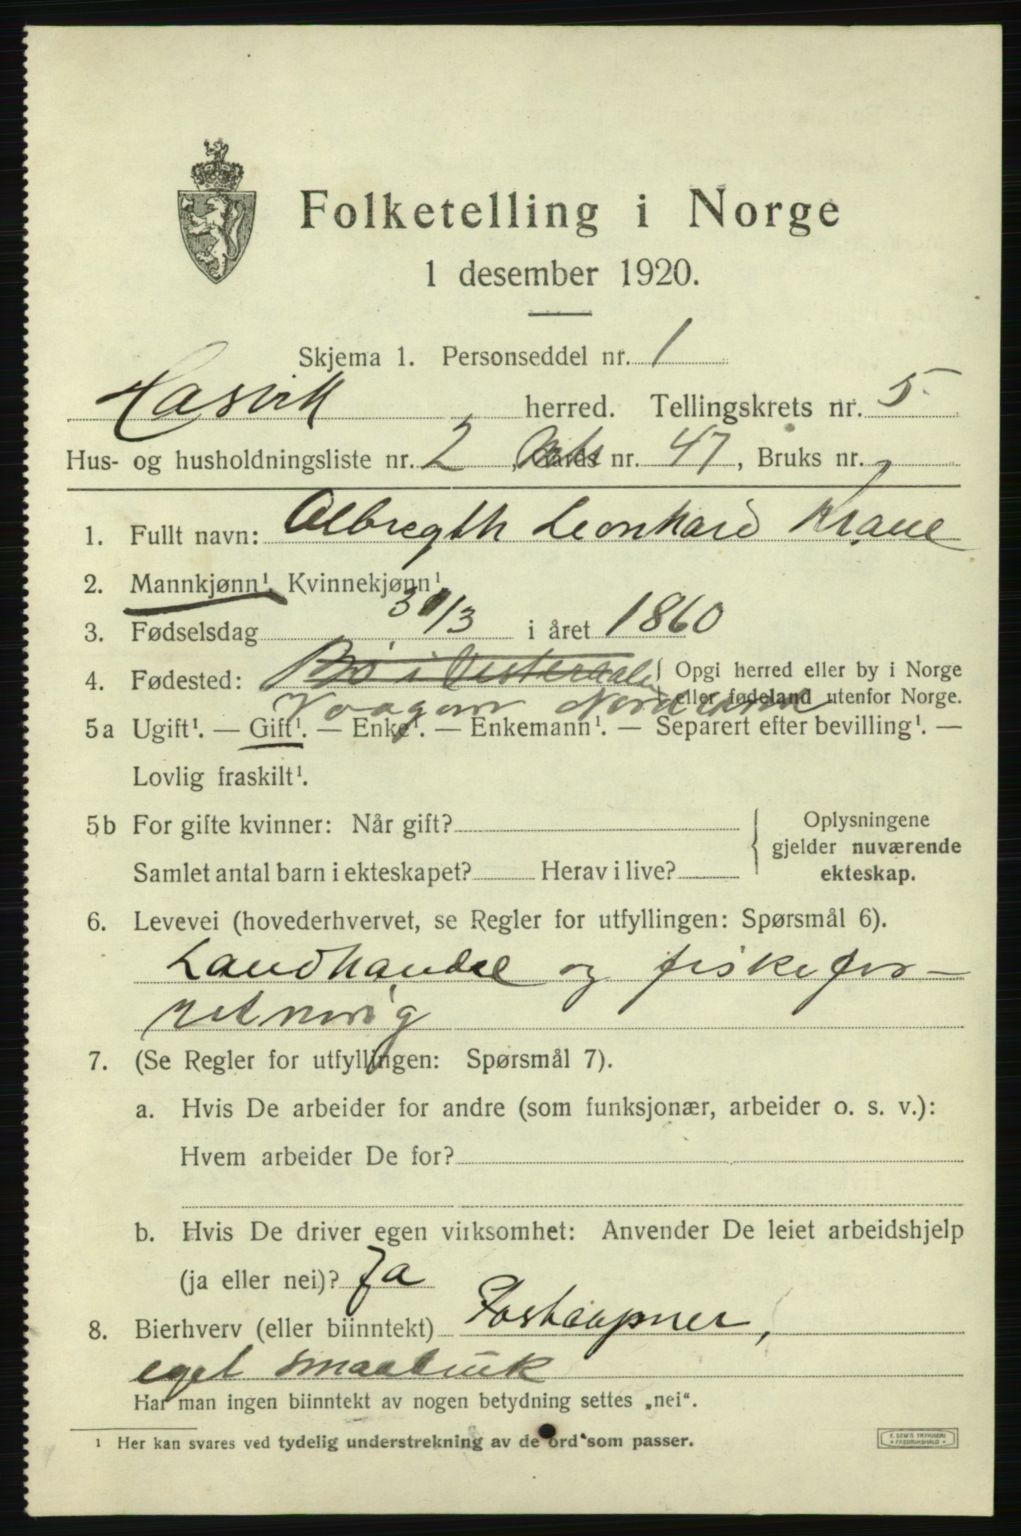 Folketelling i Norge
1 desember 1920.
Skjema 1. Personseddel nr. 1
Hasvik herred. Tellingskrets nr. 5
Hus- og husholdningsliste nr. 2, Gards nr. 47, Bruks nr.
1. Fullt navn: Albregth Leonhard Krane
2. Mannkjønn¹. Kvinnekjønn¹.
3. Fødselsdag 30/3 i året 1860
4. Fødested: Bø i Vesteraalen { Opgi herred eller by i Norge
Vaagan Nordland eller fødeland utenfor Norge.
5a Ugift¹. — Gift¹. — Enke¹. — Enkemann¹. — Separert efter bevilling¹. —
Lovlig fraskilt¹.
5b For gifte kvinner: Når gift?
Samlet antal barn i ekteskapet? Herav i live?
Oplysningene
gjelder nuværende
ekteskap.
6. Levevei (hovederhvervet, se Regler for utfyllingen: Spørsmål 6).
Landhandel og fiskefor-
retning
7. (Se Regler for utfyllingen: Spørsmål 7).
a. Hvis De arbeider for andre (som funksjonær, arbeider o. s. v.):
Hvem arbeider De for?
b. Hvis De driver egen virksomhet: Anvender De leiet arbeidshjelp
(ja eller nei)? Ja
8. Bierhverv (eller biinntekt) Postaapner,
eget smaabruk
Har man ingen biinntekt av nogen betydning settes „nei“.
¹ Her kan svares ved tydelig understrekning av de ord som passer.
E. SEM'S TRYKKERI
FREDRIKSHALD